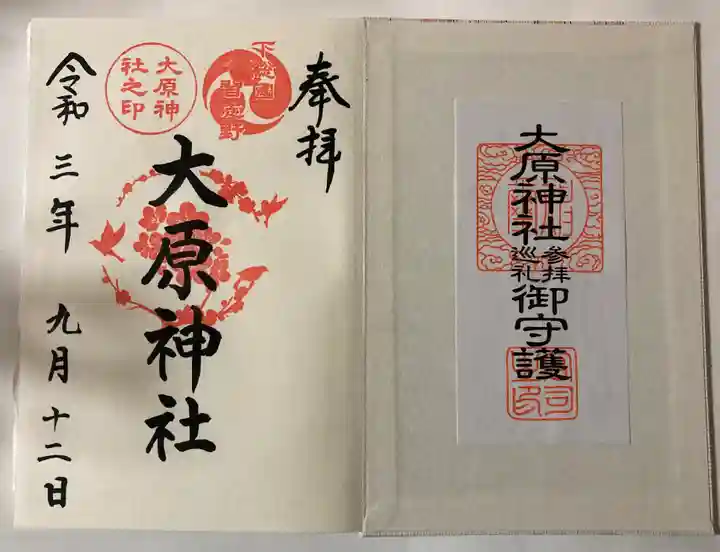 奉拝
下総国
習志野
大原神
社之印
大原神社
令和三年九月十二日
大原神社参拝巡礼御守護